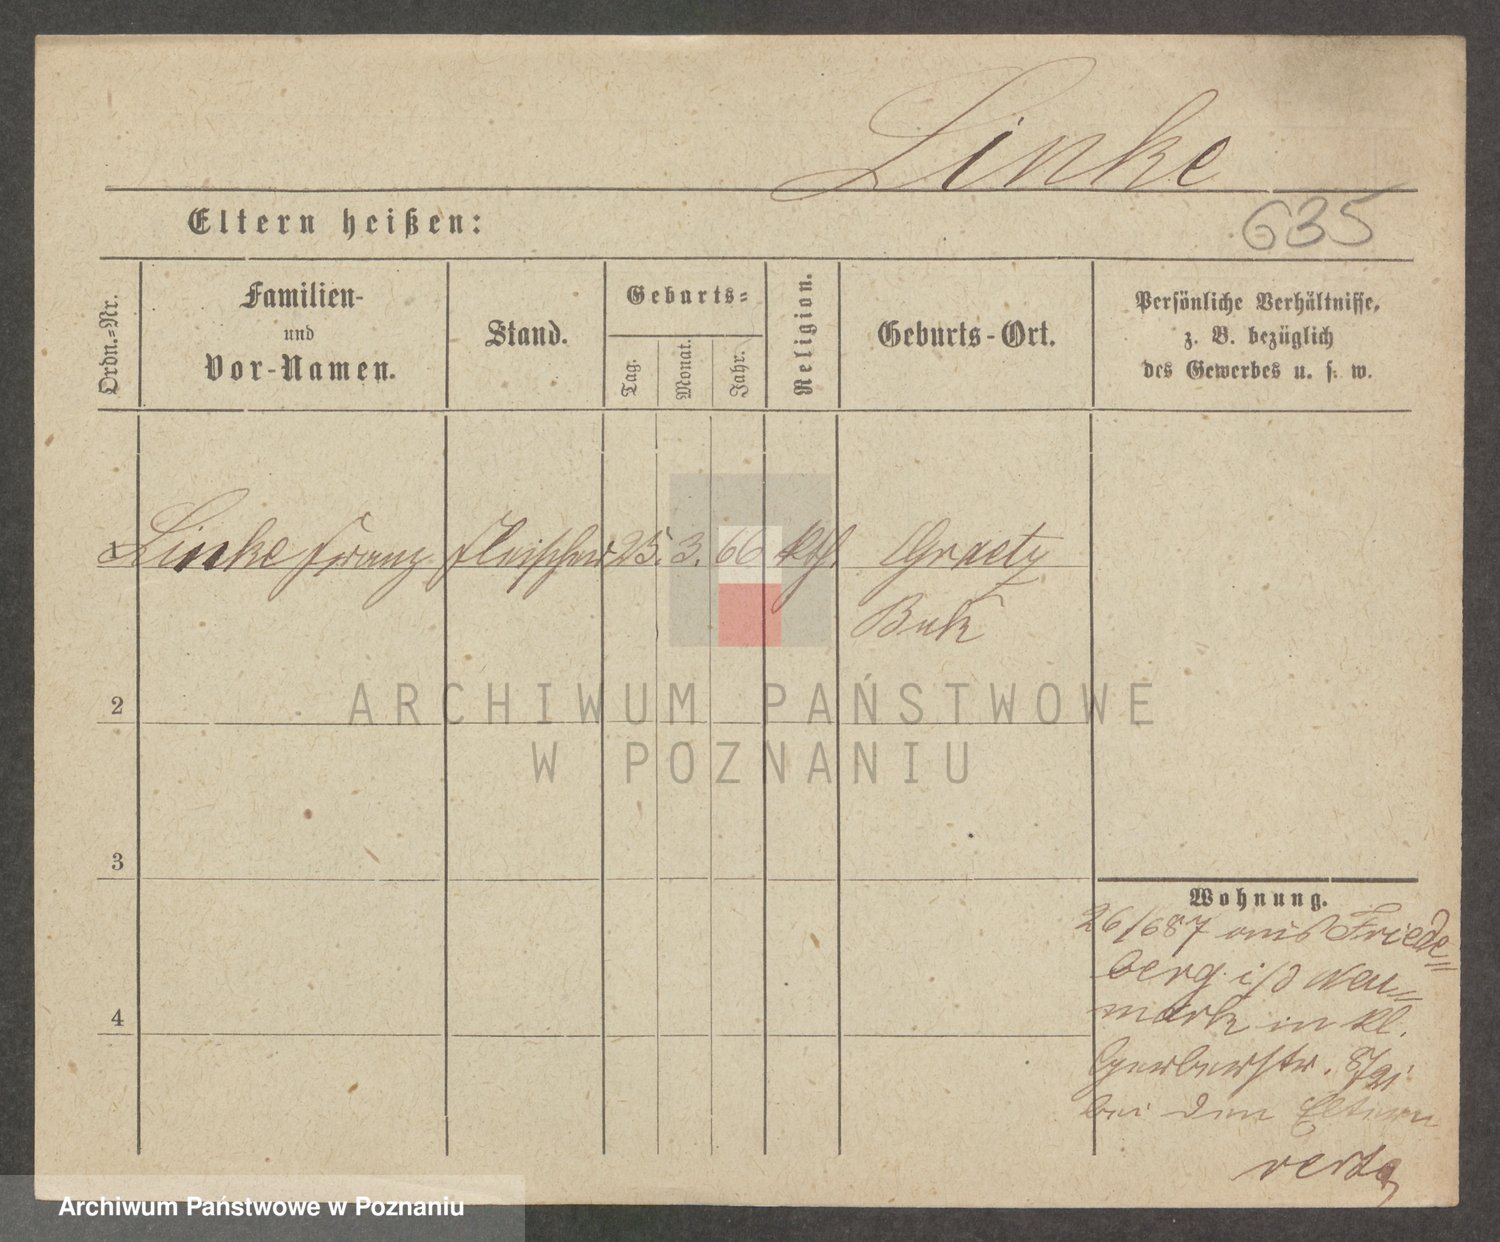 Linke
635
Eltern heißen:
Ordn.-Nr.
Familien-
und
Vor-Namen.
Stand.
Geburts-
Tag.
Monat.
Jahr.
Religion.
Geburts-Ort.
Persönliche Verhältnisse,
z. B. bezüglich
des Gewerbes u. s. w.
1 Linke Franz Fleischer 25. 3. 66 kth. Graetz
Buk
2
ARCHIWUM PAŃSTWOWE
W POZNANIU
3
Wohnung.
26/6 87 aus Friede-
berg i/d Neu-
mark in kl.
4
Gerberstr.
bei den Eltern
Archiwum Państwowe w Poznaniu